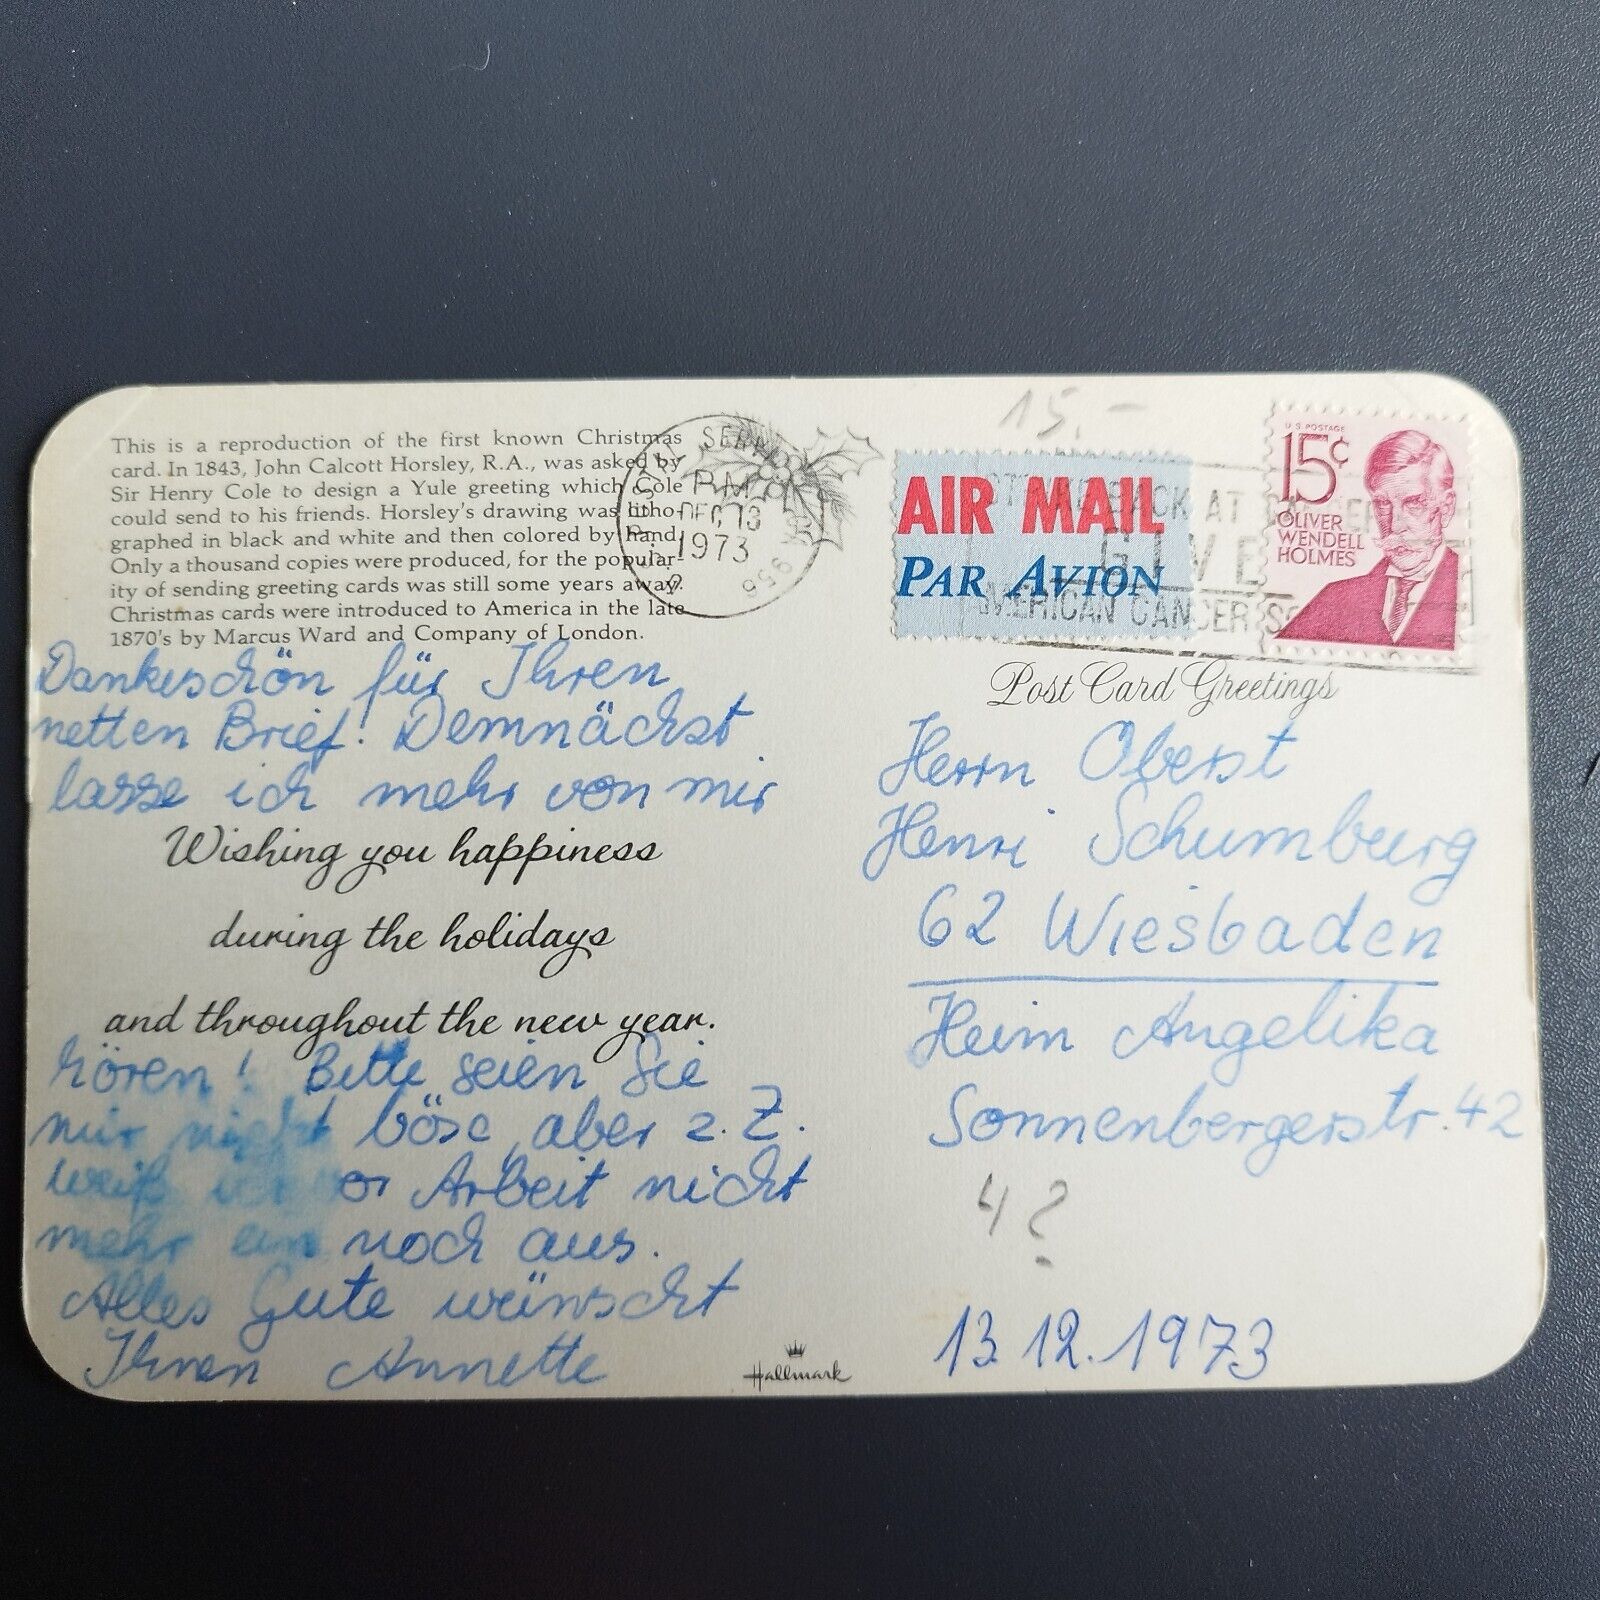 This is a reproduction of the first known Christmas
card. In 1843, John Calcott Horsley, R.A., was asked by
Sir Henry Cole to design a Yule greeting which Cole
could send to his friends. Horsley's drawing was litho-
graphed in black and white and then colored by hand.
Only a thousand copies were produced, for the popular-
ity of sending greeting cards was still some years away.
Christmas cards were introduced to America in the late
1870's by Marcus Ward and Company of London.
Dankeschön für Ihren
netten Brief! Demnächst
lasse ich mehr von mir
Wishing you happiness
during the holidays
and throughout the new year.
hören! Bitte seien Sie
mir nicht böse, aber z. Z.
weiß ich vor Arbeit nicht
mehr ein noch aus.
Alles Gute wünscht
Ihnen Annette
Hallmark
PM
DEC 13
1973
956
15.-
AIR MAIL
PAR AVION
STRIKE BACK AT CANCER
GIVE
AMERICAN CANCER
U.S. POSTAGE
15¢
OLIVER
WENDELL
HOLMES
Post Card Greetings
Herrn Oberst
Henri Schumburg
62 Wiesbaden
Heim Angelika
Sonnenbergerstr. 42
4?
13.12.1973